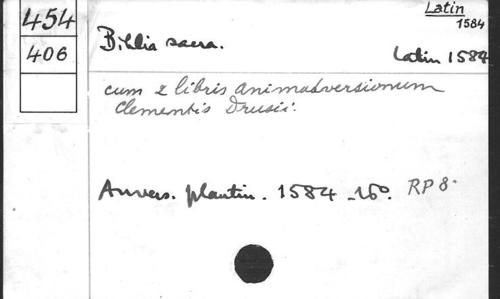 454
406
Latin
1584
Biblia sacra.
Latin 1584
cum 2 libris animadversionum
Clementis Drusii.
Anvers. plantin. 1584 - 16º. RP 8.